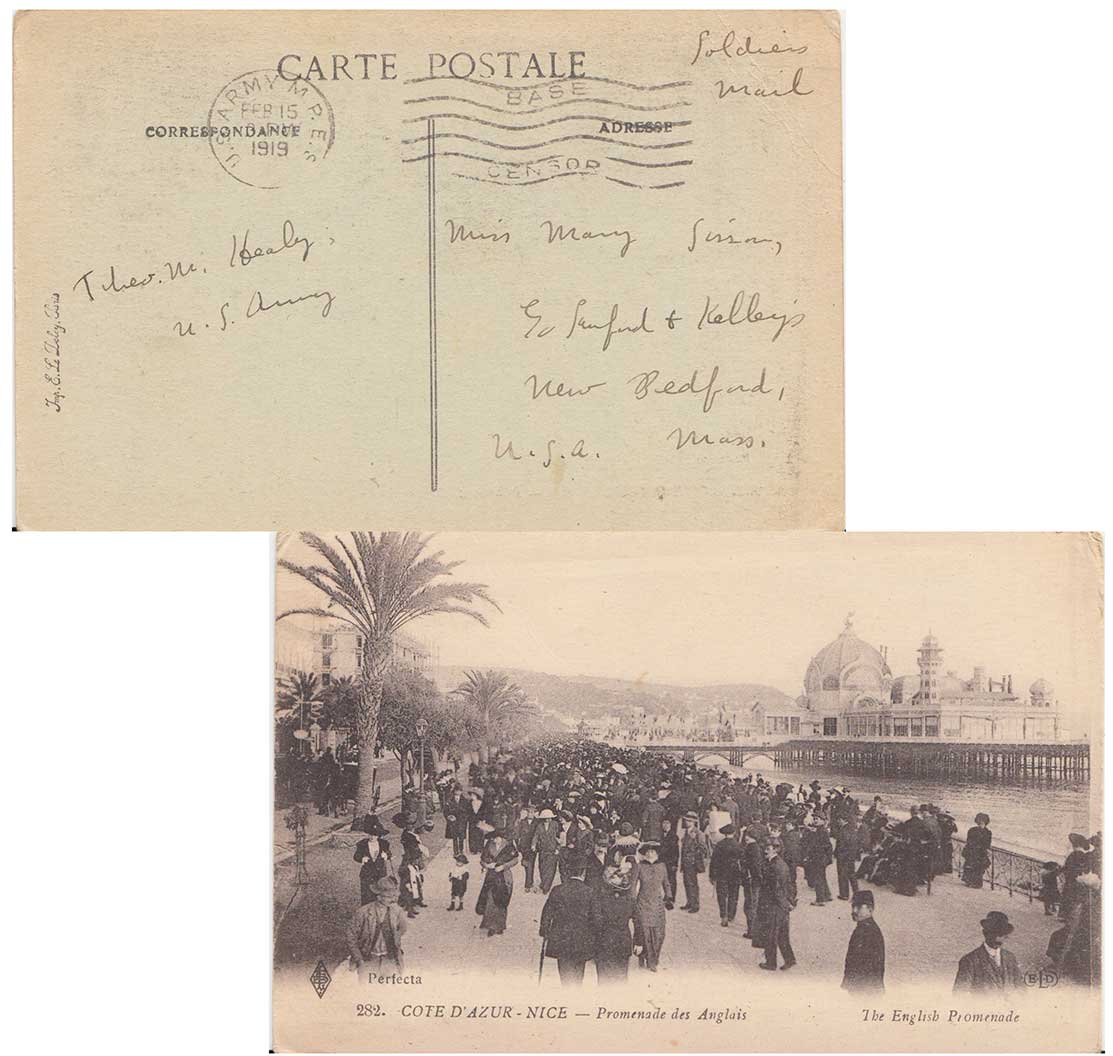 Soldiers
Mail
CARTE POSTALE
U.S. ARMY M.P.E.S.
FEB 15
PM
1919
BASE
CENSOR
CORRESPONDANCE
ADRESSE
Theo. M. Healy,
U. S. Army
Miss Mary Sisson,
c/o Sanford & Kelley's
New Bedford,
U.S.A. Mass.
Imp. E. Le Deley, Paris
Perfecta
ELD
282. COTE D'AZUR - NICE — Promenade des Anglais The English Promenade